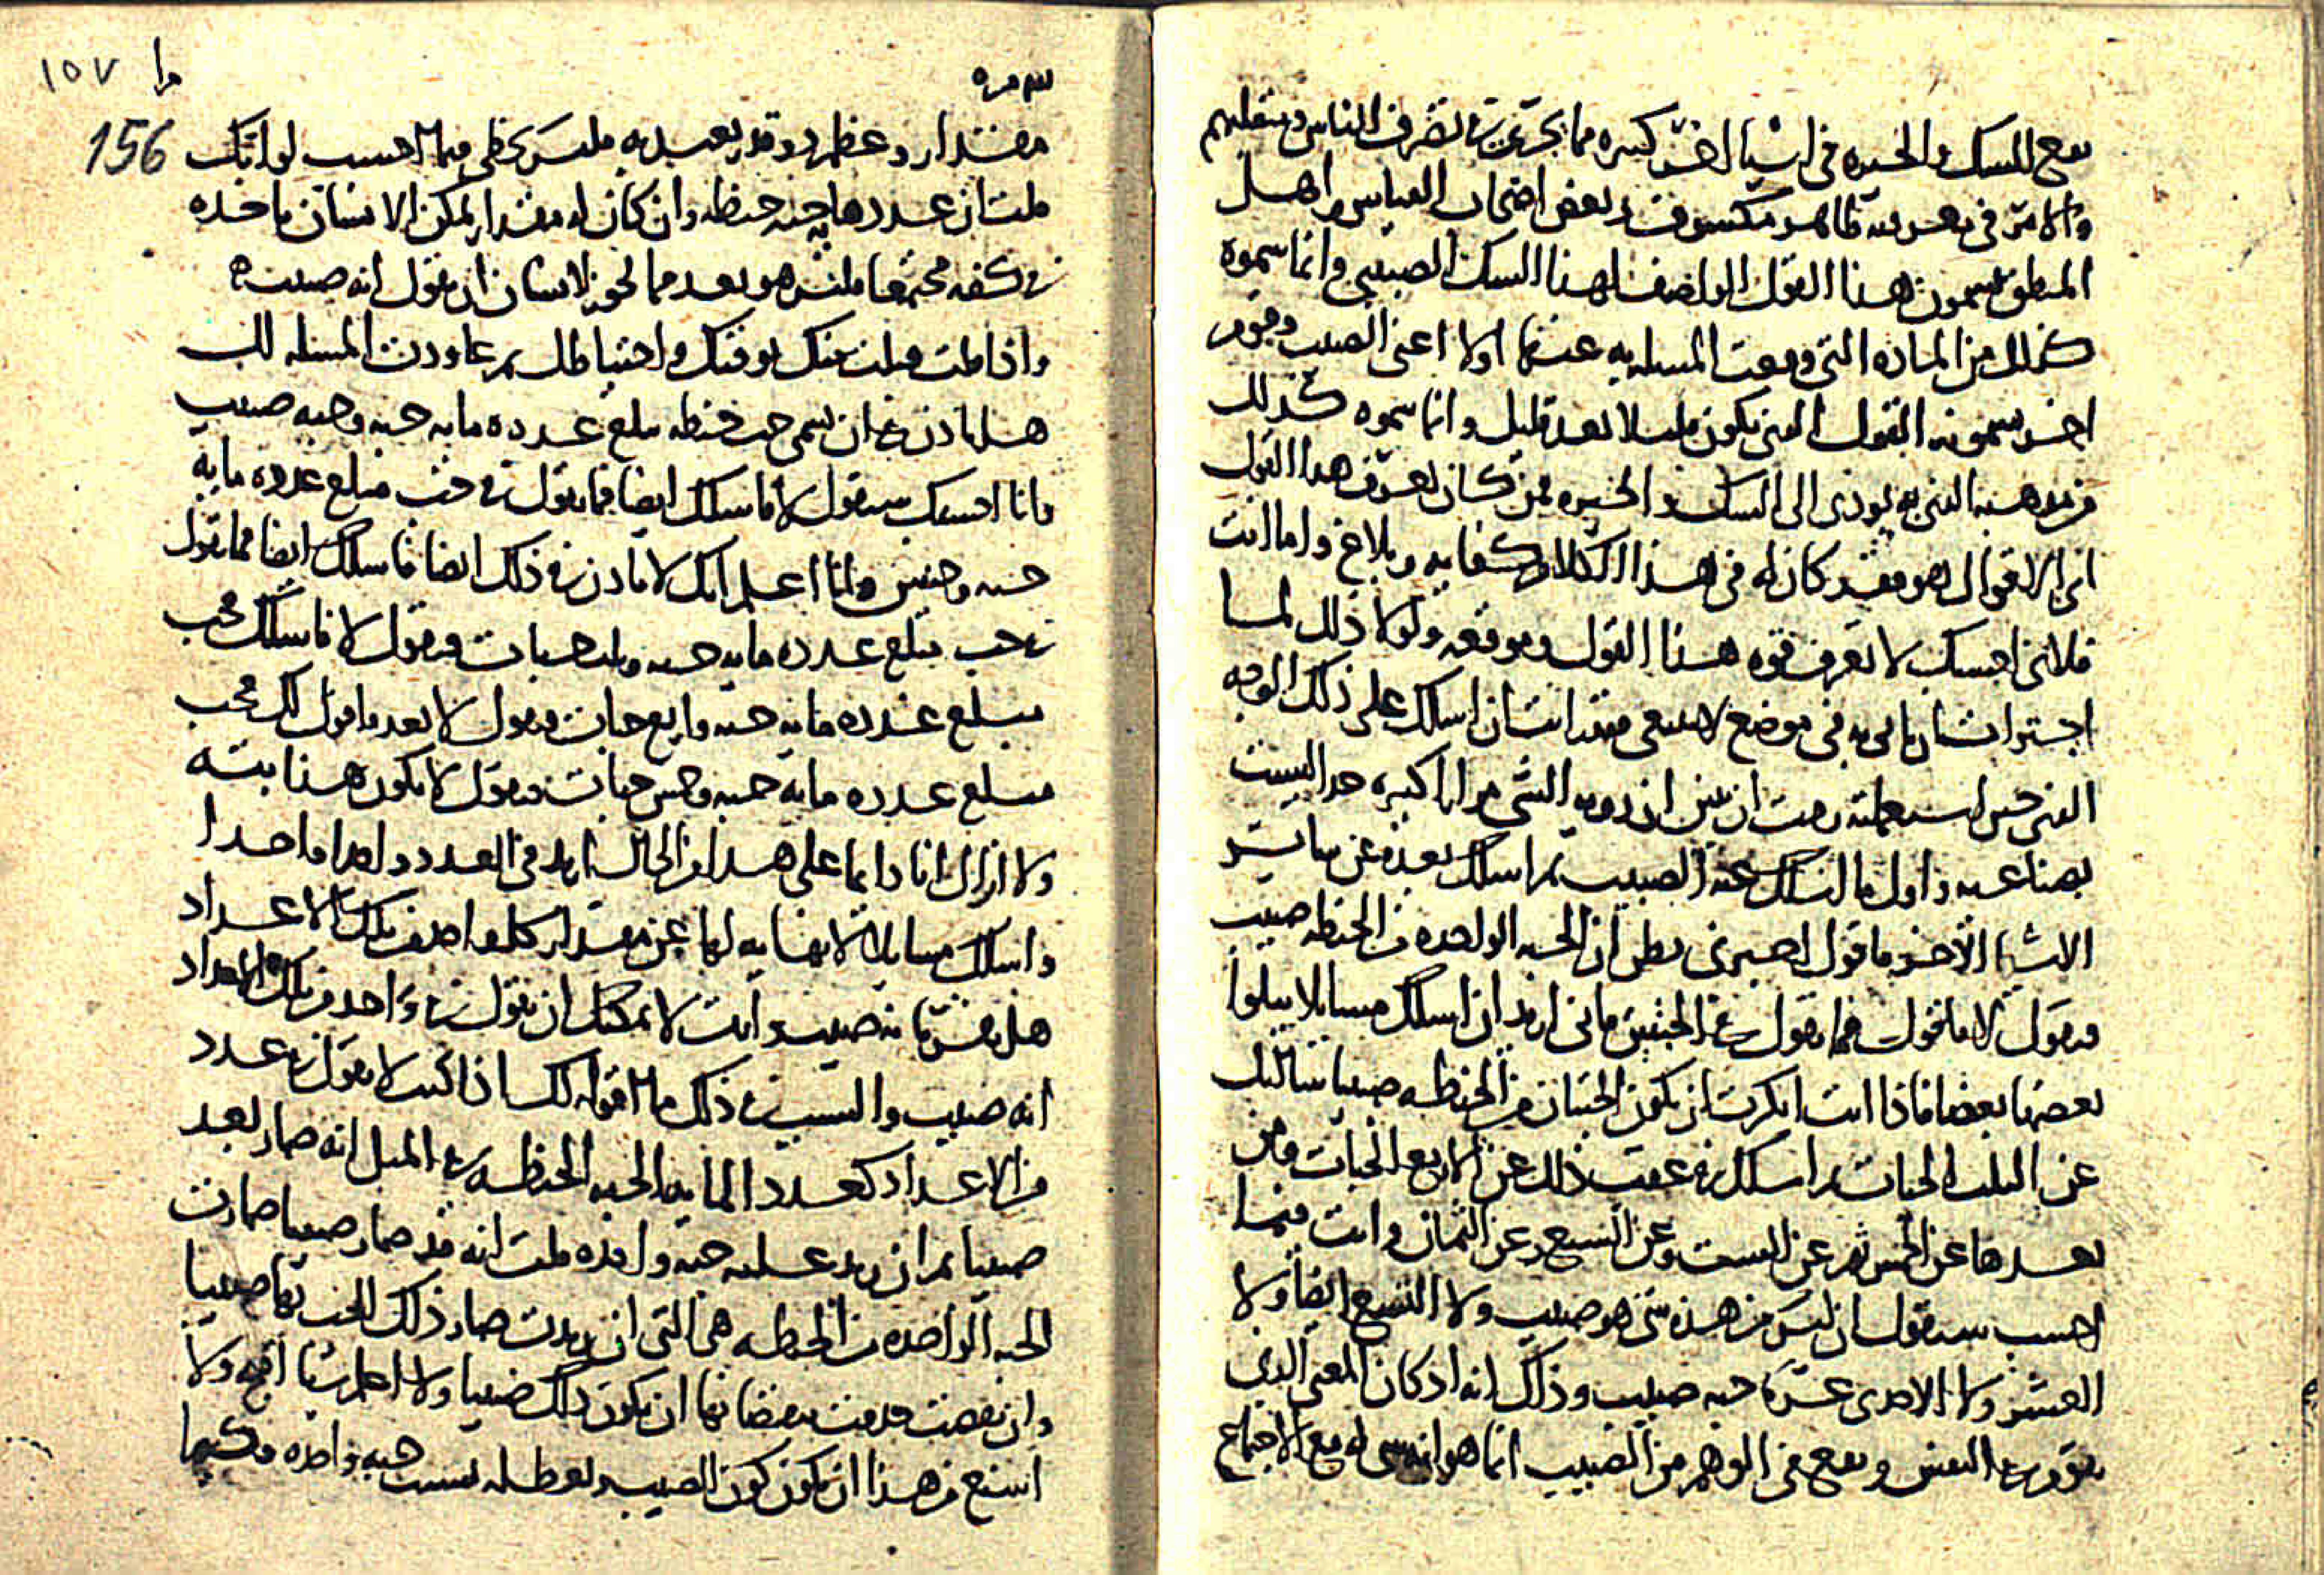 يقع للشك والحيره فى اشيا اخر كثيره مما يجرى فى تصرف الناس وتقلبهم
والامر فى بعر فيه ظاهر مكشوف وبعض اصحاب القياس واهل
المنطق يسمون هذا القول الواصف لهذا الشك الصبيبى وانما سموه
كذلك من الماده التى وقعت المسله به عنها اولا اعنى الصبيب وقوم
اخر يسمونه القول الذى يكون قليلا بعد قليل وانما سموه كذلك
من مذهبه الذى به يودى الى الشك والحيره فمن كان يعرف هذا القول
اى الاقوال هو فقد كان له فى هذا الكلام كفايه وبلاغ واما انت
فلانى احسبك لا تعرف قوه هذا القول وموقعه ولولا ذلك لما
اجترات ان تاتى به فى موضع لا ينبغى فقد اتيت ان اسلك على ذلك الوجه
الذى حين استعملته رمت ان تبين ان رويه الشى مرارا كثيره جدا ليست
بصناعيه واول ما اسلك عنه الصبيب ثم اسلك بعده عن ساير
الاشيا الاخر فاقول اخبرنى تظن ان الحبه الواحده من الحنطه صبيب
فتقول لا فاقول فما تقول فى الحبتين فانى اريد ان اسلك مسايلا يتلوا
بعضها بعضا فاذا انت انكرت ان تكون الحبتان من الحنطه صبيبا سالتك
عن الثلث الحبات ثم اسلك فى عقب ذلك عن الاربع الحبات ومن
بعدها عن الخمس ثم عن الست وعن السبع وعن الثمان وانت فيما
احسب ستقول ان ليس من هذه شى هو صبيب ولا التسع ايضا ولا
العشر ولا الاحدى عشره حبه صبيب وذلك انه اذ كان المعنى الذى
يتقوم فى النفس ويقع فى الوهم من الصبيب انما هو انه شى له مع الاجتماع
١٥٧
156
مقدار وعظم ذو قدر يعتد به فليس يخطى فيما احسب لو انك
قلت ان عددها مايه حبه حنطه وان كان له مقدار يمكن الانسان ياخذه
فى كفه مجتمعا فليس هو بعد مما يجوز لانسان ان يقول انه صبيب
واذا قلت قبلت منك توقيك واحتياطك ثم عاودت المسله لك
هل تاذن فى ان نسمى حب حنطه مبلغ عدده مايه حبه وحبه صبيب
وانا احسبك ستقول لا فاسلك ايضا فما تقول فى حب مبلغ عدده مايه
حبه وحبتين وانا اعلم انك لا تاذن فى ذلك ايضا فاسلك ايضا فما تقول
فى حب يبلغ عدده مايه حبه وثلث حبات فتقول لا فاسلك فحب
يبلغ عدده مايه حبه واربع حبات فتقول لا بعد فاقول لك فحب
مبلغ عدده مايه حبه وخمس حبات فتقول لا يكون هذا بته
ولا ازال انا دايما على هذا من الحال ازيد فى العدد واحدا واحدا
واسلك مسايل لا نهايه لها عن مقدار كل واحد من تلك الاعداد
هل تقر بانه صبيب وانت لا يمكنك ان تقول فى واحد من تلك الاعداد
انه صبيب والسبب فى ذلك ما اقوله لك اذا كنت لا تقول فى عدد
من الاعداد كعدد المايه الحبه الحنطه فى المثل انه صار بعد
صبيبا ثم ان زيد عليه حبه واحده قلت انه قد صار صبيبا صارت
الحبه الواحده من الحنطه هى التى ان زيدت صار ذلك الحب بها صبيبا
وان نقصت عدمت بنقصانها ان يكون ذلك صبيبا ولا اعلم شيا اقبح ولا
اشنع من هذا ان يكون كون الصبيب وبطله بسبب حبه واحده